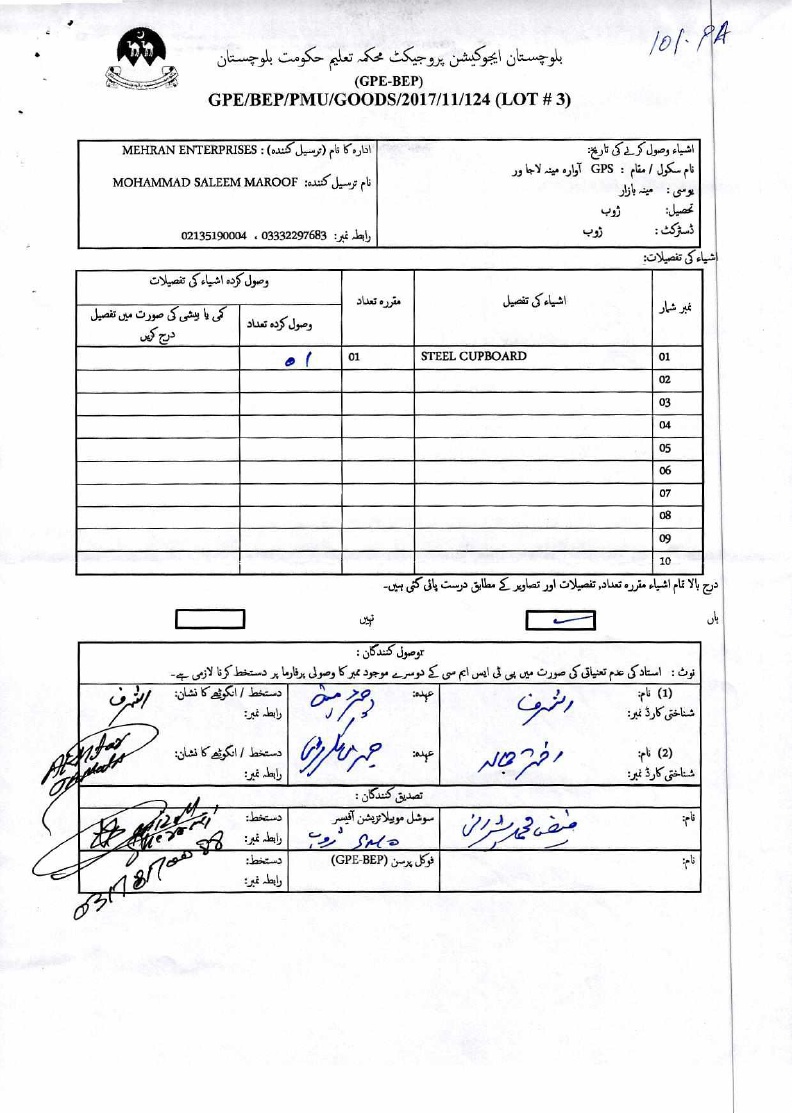 101-PA
بلوچستان ایجوکیشن پروجیکٹ محکمہ تعلیم حکومت بلوچستان
(GPE-BEP)
GPE/BEP/PMU/GOODS/2017/11/124 (LOT # 3)
اشیاء وصول کرنے کی تاریخ:
نام سکول / مقام : GPS آوارہ مینہ لاجا ور
یوسی : مینہ بازار
تحصیل: ژوب
ڈسٹرکٹ : ژوب
ادارہ کا نام (ترسیل کنندہ) : MEHRAN ENTERPRISES
نام ترسیل کنندہ: MOHAMMAD SALEEM MAROOF
رابطہ نمبر: 03332297683 ، 02135190004
اشیاء کی تفصیلات:
نمبر شمار اشیاء کی تفصیل مقررہ تعداد وصول کردہ اشیاء کی تفصیلات
وصول کردہ تعداد کمی یا بیشی کی صورت میں تفصیل درج کریں
01 STEEL CUPBOARD 01 01
02
03
04
05
06
07
08
09
10
درج بالا تمام اشیاء مقررہ تعداد, تفصیلات اور تصاویر کے مطابق درست پائی گئی ہیں۔
ہاں نہیں
توصول کنندگان :
نوٹ : استاد کی عدم تعیناتی کی صورت میں پی ٹی ایس ایم سی کے دوسرے موجود ممبر کا وصولی پرفارما پر دستخط کرنا لازمی ہے۔
(1) نام: اشرف عہدہ: دستخط / انگوٹھے کا نشان: اشرف
شناختی کارڈ نمبر: رابطہ نمبر:
(2) نام: عہدہ: دستخط / انگوٹھے کا نشان:
شناختی کارڈ نمبر: رابطہ نمبر:
تصدیق کنندگان :
نام: فیض محمد شیرانی سوشل موبیلائزیشن آفیسر دستخط:
ژوب رابطہ نمبر:
نام: فوکل پرسن (GPE-BEP) دستخط:
رابطہ نمبر: